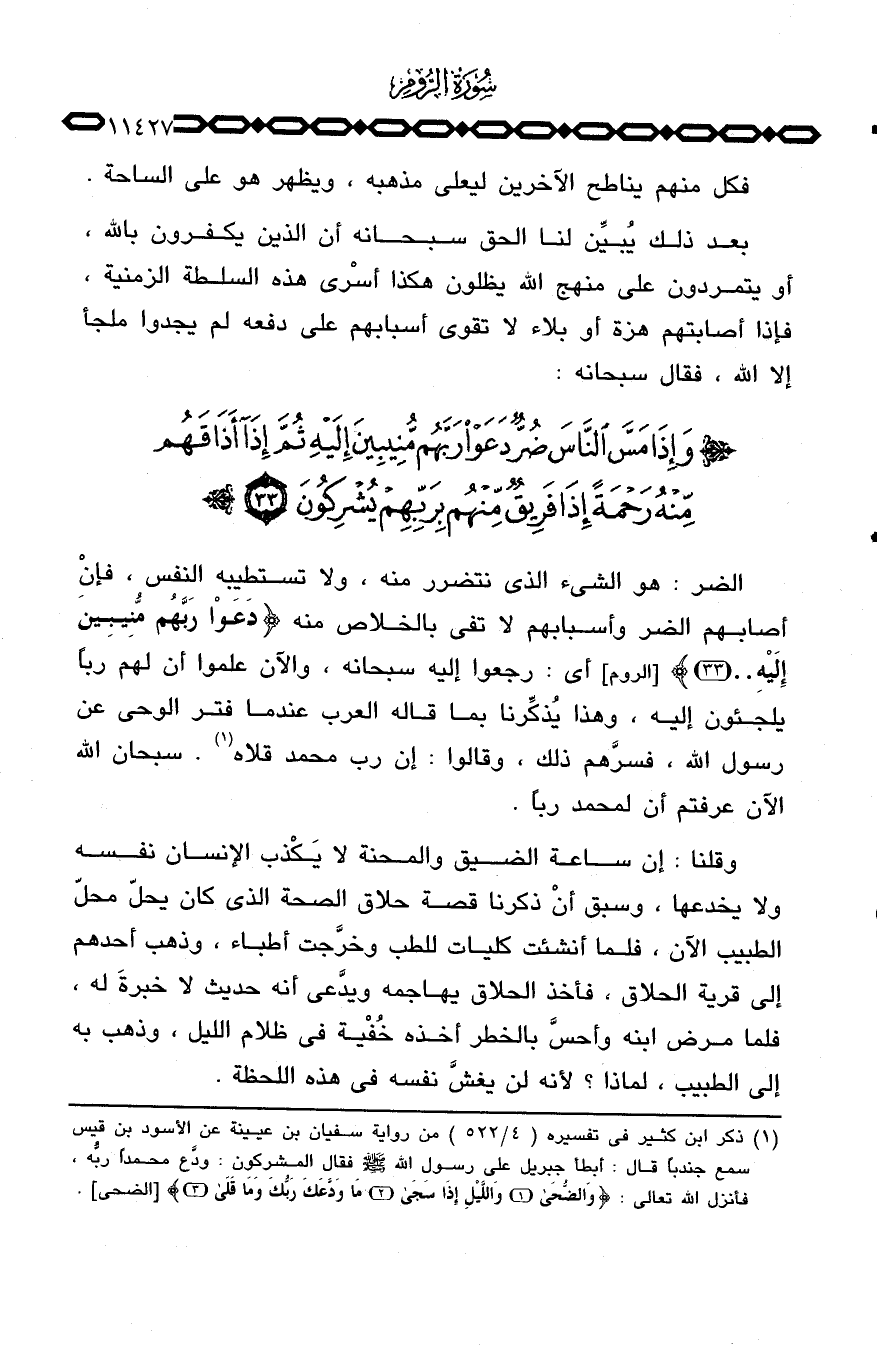 سُورَةُ الرُّومِ
١١٤٢٧
فكل منهم يناطح الآخرين ليعلى مذهبه ، ويظهر هو على الساحة .
بعد ذلك يُبيِّن لنا الحق سبحانه أن الذين يكفرون بالله ،
أو يتمردون على منهج الله يظلون هكذا أسْرى هذه السلطة الزمنية ،
فإذا أصابتهم هزة أو بلاء لا تقوى أسبابهم على دفعه لم يجدوا ملجأ
إلا الله ، فقال سبحانه :
وَإِذَا مَسَّ ٱلنَّاسَ ضُرٌّ دَعَوْا۟ رَبَّهُم مُّنِيبِينَ إِلَيْهِ ثُمَّ إِذَآ أَذَاقَهُم
مِّنْهُ رَحْمَةً إِذَا فَرِيقٌ مِّنْهُم بِرَبِّهِمْ يُشْرِكُونَ ٣٣
الضر : هو الشىء الذى نتضرر منه ، ولا تستطيبه النفس ، فإنْ
أصابهم الضر وأسبابهم لا تفى بالخلاص منه ﴿دَعَوْا رَبَّهُم مُّنِيبِينَ
إِلَيْهِ..(٣٣)﴾ [الروم] أى : رجعوا إليه سبحانه ، والآن علموا أن لهم رباً
يلجئون إليه ، وهذا يُذكِّرنا بما قاله العرب عندما فتر الوحى عن
رسول الله ، فسرَّهم ذلك ، وقالوا : إن رب محمد قلاه(١) . سبحان الله
الآن عرفتم أن لمحمد رباً .
وقلنا : إن ساعة الضيق والمحنة لا يَكْذب الإنسان نفسه
ولا يخدعها ، وسبق أنْ ذكرنا قصة حلاق الصحة الذى كان يحلّ محلّ
الطبيب الآن ، فلما أنشئت كليات للطب وخرَّجت أطباء ، وذهب أحدهم
إلى قرية الحلاق ، فأخذ الحلاق يهاجمه ويدَّعى أنه حديث لا خبرةَ له ،
فلما مرض ابنه وأحسَّ بالخطر أخذه خُفْية فى ظلام الليل ، وذهب به
إلى الطبيب ، لماذا ؟ لأنه لن يغشَّ نفسه فى هذه اللحظة .
(١) ذكر ابن كثير فى تفسيره ( ٥٢٢/٤ ) من رواية سفيان بن عيينة عن الأسود بن قيس
سمع جندباً قال : أبطأ جبريل على رسول الله ﷺ فقال المشركون : ودَّع محمداً ربُّه ،
فأنزل الله تعالى : ﴿وَالضُّحَىٰ (١) وَاللَّيْلِ إِذَا سَجَىٰ (٢) مَا وَدَّعَكَ رَبُّكَ وَمَا قَلَىٰ (٣)﴾ [الضحى] .